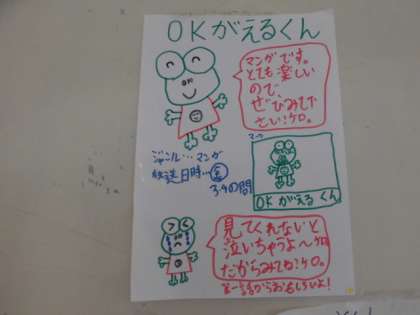 OKがえるくん
マンガです。
とても楽しい
ので、
ぜひみてくだ
さい!ケロ。
ジャンル…マンガ
放送日時…
3.4の間
マーク
OKがえるくん
見てくれないと
泣いちゃうよ~ケロ
だからみてね!ケロ。
第一話からおもしろいよ!